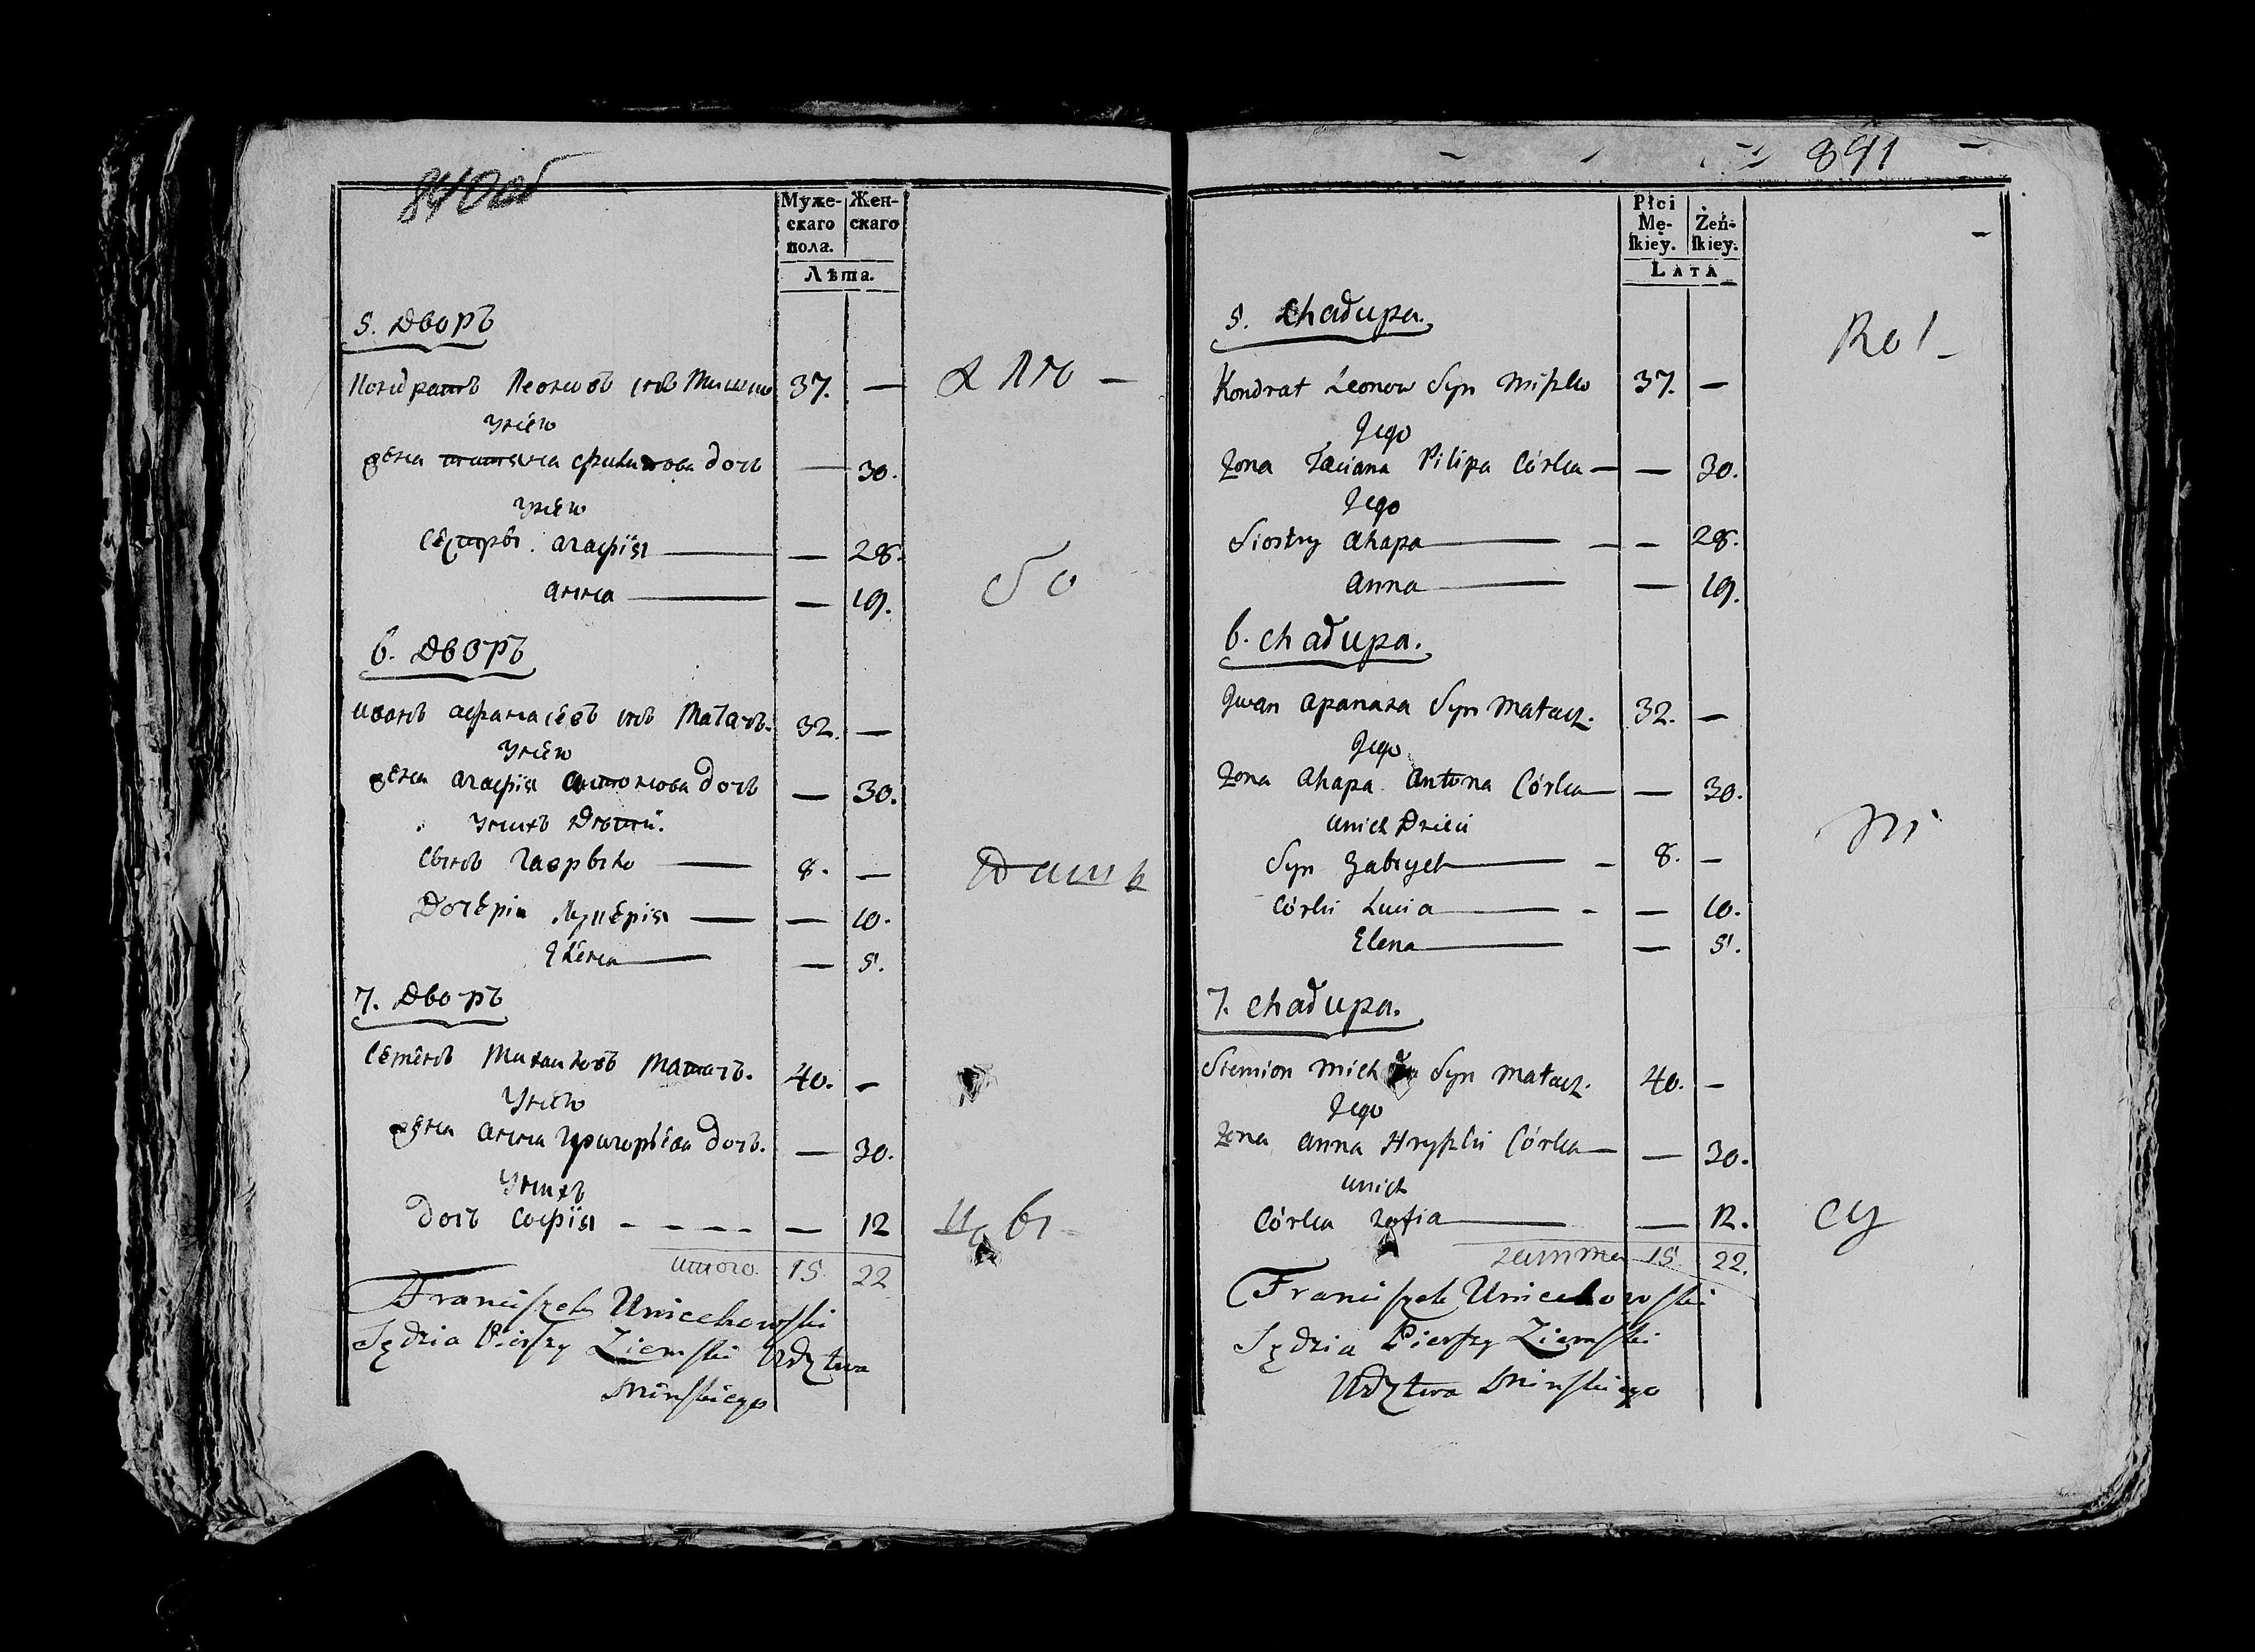 840об
Муже-
скаго
пола.
Жен-
скаго
Лѣта.
5. Дворъ
Кондратъ Леоновъ снъ Мишко 37. —
У нево
жена татьяна филипова дочь — 30.
У нево
Сестры. агафія — 28.
анна — 19.
6. Дворъ
иванъ афанасевъ снъ Матачъ. 32. —
У нево
жена агафія антонова дочь — 30.
У нихъ дѣти.
Сынъ гаврыло 8. —
Дочери Лукерія — 10.
Елена — 5.
7. Дворъ
Семенъ Михаиловъ Матачъ. 40. —
У нево
жена анна григорьева дочь. — 30.
У нихъ
дочь софія — 12
итого. 15. 22
Franciszek Uniechowski
Sędzia Pierszy Ziemski Wdztwa
Minskiego
891
Płci
Mę-
skiey.
Żeń-
skiey.
LATA
5. Chałupa.
Kondrat Leonow Syn Miszko 37. —
Jego
Żona Taciana Pilipa Córka — 30.
Jego
Siostry Ahapa — 28.
Anna — 19.
6. Chałupa.
Jwan Apanasa Syn Matacz. 32. —
Jego
Żona Ahapa Antona Córka — 30.
U nich Dzieci
Syn Gabryel 8. —
Córki Lucia — 10.
Elena — 5.
7. Chałupa.
Siemion Syn Matacz. 40. —
Jego
Żona Anna Hryszki Córka — 30.
U nich
Córka Zofia — 12.
summa 15. 22.
Franciszek Uniechowski
Sędzia Pierszy Ziemski
Wdztwa Minskiego